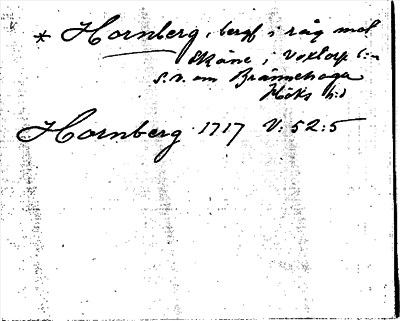 * Hornberg, berg i råg mot
Skåne i Voxtorp s:n
S.v. om Brännehoga
Höks h:d
Hornberg 1717 V: 52:5